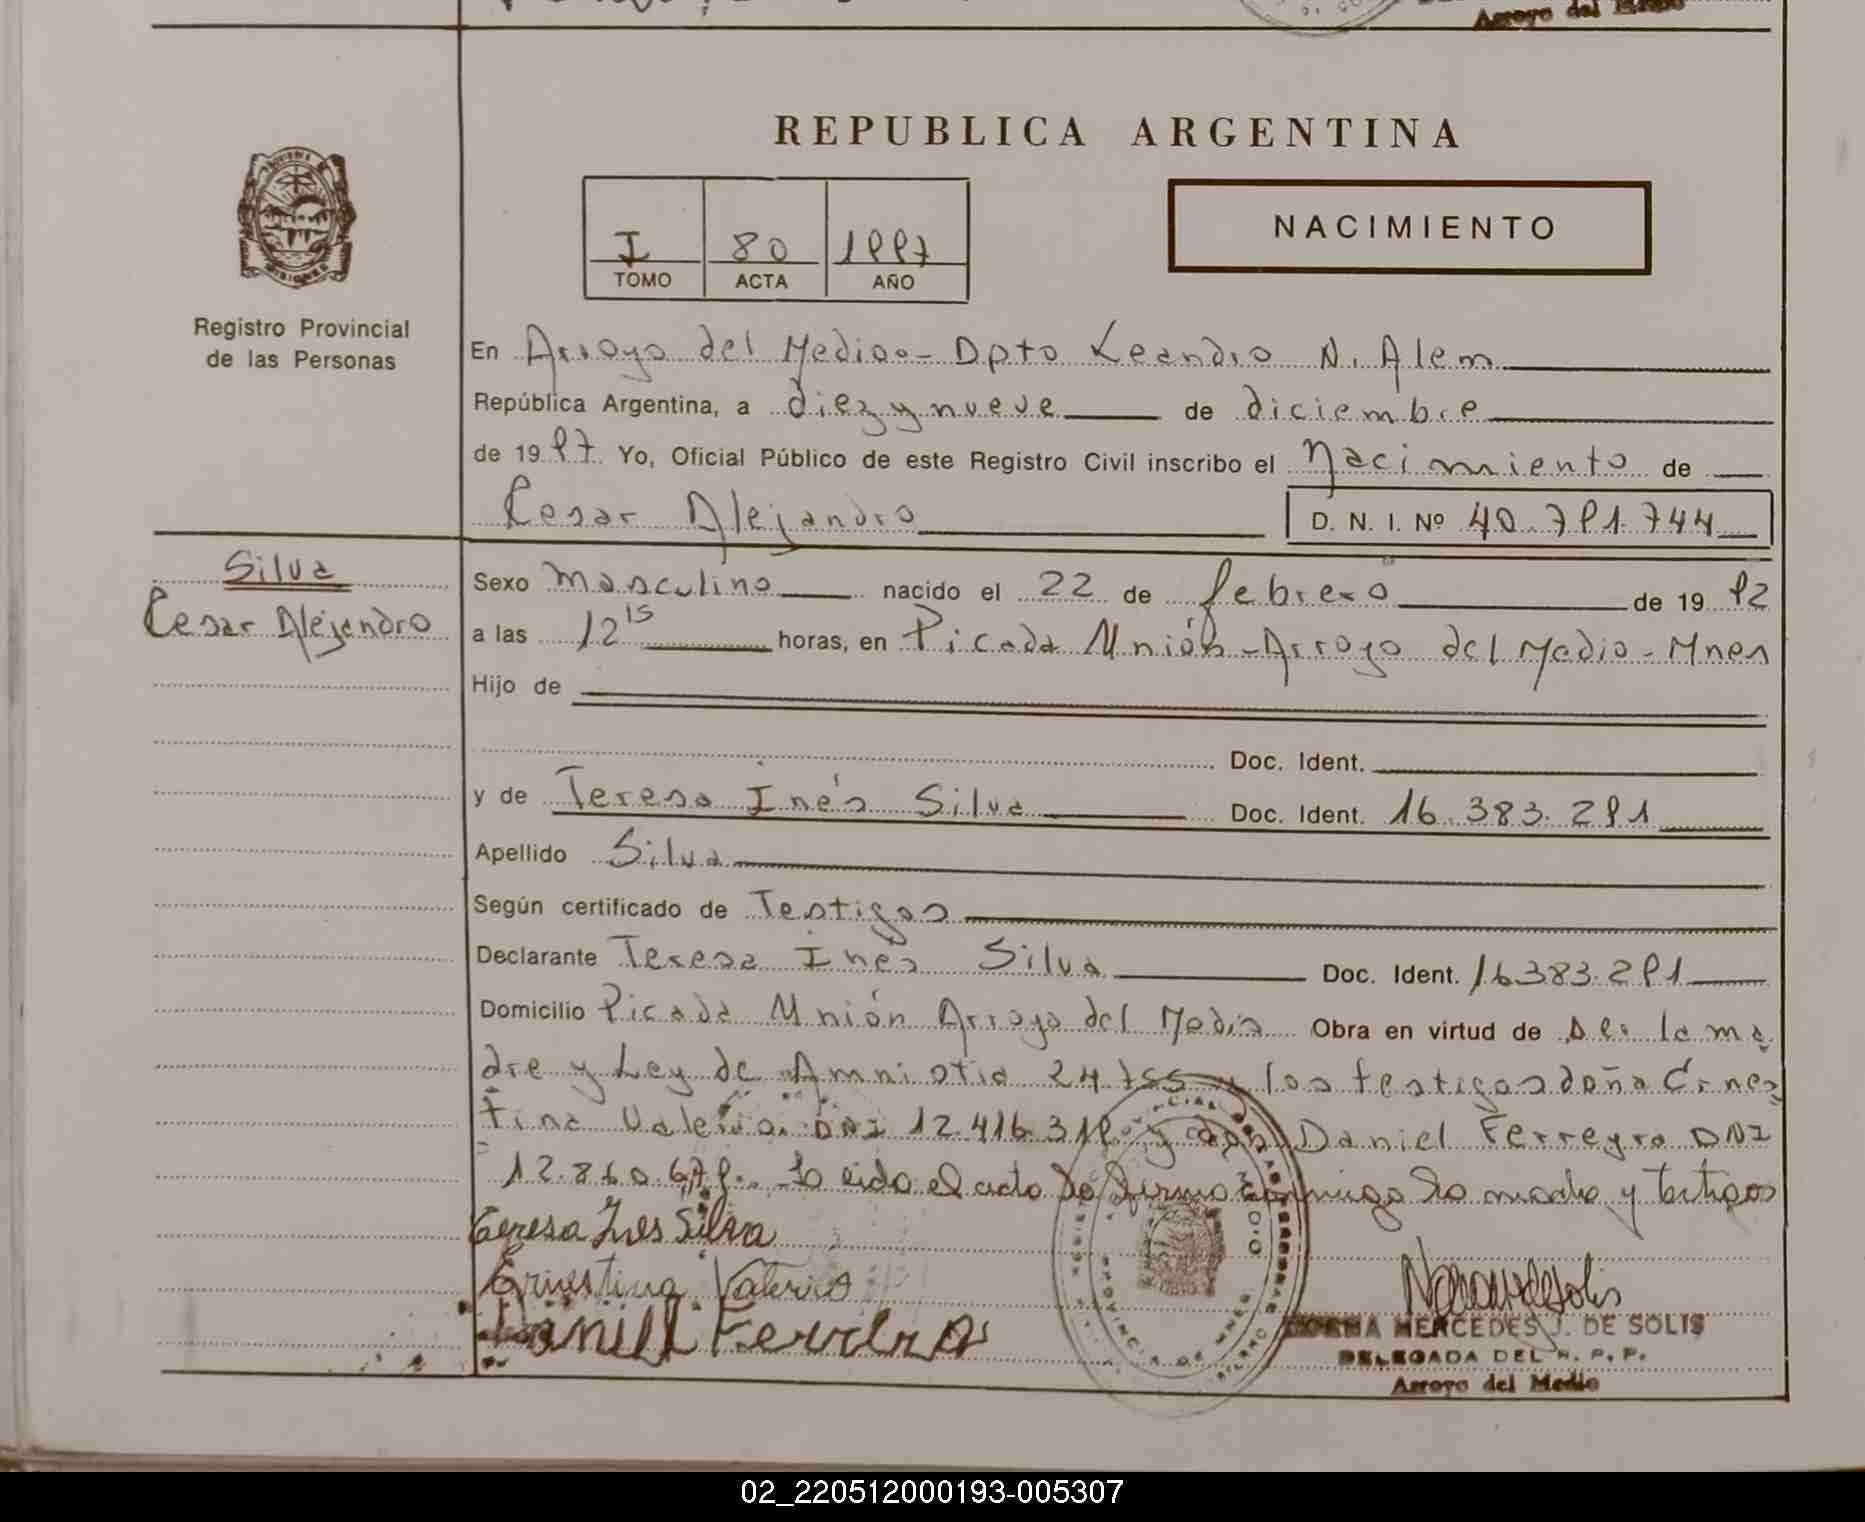 Arroyo del Medio
REPUBLICA ARGENTINA
NACIMIENTO
I 80 1997
TOMO ACTA AÑO
Registro Provincial
de las Personas
En Arroyo del Medio - Dpto Leandro N. Alem
República Argentina, a diez y nueve de diciembre
de 1997 Yo, Oficial Público de este Registro Civil inscribo el Nacimiento de
Cesar Alejandro D. N. I. Nº 40.791.744
Silva
Cesar Alejandro
Sexo masculino nacido el 22 de febrero de 1992
a las 12 15 horas, en Picada Unión - Arroyo del Medio - Mnes
Hijo de
Doc. Ident.
y de Teresa Inés Silva Doc. Ident. 16.383.291
Apellido Silva
Según certificado de Testigos
Declarante Teresa Inés Silva Doc. Ident. 16383.291
Domicilio Picada Unión Arroyo del Medio Obra en virtud de Ser la ma
dre y Ley de Amnistia 24.755 y los testigos doña Ernes
tina Valerio DNI 12.416.319 y don Daniel Ferreyra DNI
12.860.679. Leida el acta la firma conmigo la madre y testigos
Teresa Ines Silva
Ernestina Valerio
Daniel Ferreira
NORMA MERCEDES J. DE SOLIS
DELEGADA DEL R. P. P.
Arroyo del Medio
PROVINCIA DE MNES
02_220512000193-005307